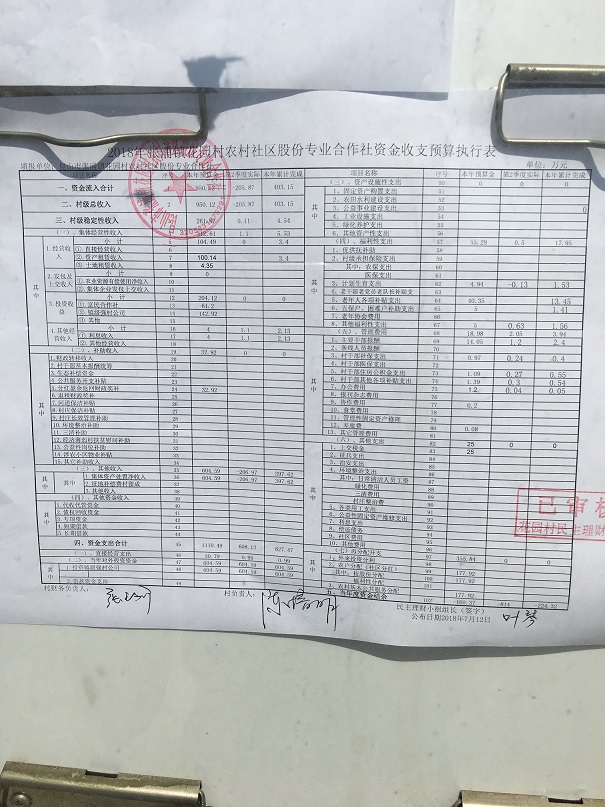 2018年张浦镇花园村农村社区股份专业合作社资金收支预算执行表
填报单位：昆山市张浦镇花园村社区股份专业合作社
单位：万元
序号 本年预算金 第2季度实际 本年累计完成
一、资金流入合计 1 -205.87 403.15
二、村级总收入 2 950.12 -205.87 403.15
三、村级稳定性收入 3 0.11 4.54
（一）、集体经营性收入 4 1.1 5.53
1.经营收入
小 计 5 104.49 0 3.4
① 直接经营收入 6
② 资产租赁收入 7 100.14 3.4
③ 土地租赁收入 8 4.35
2.发包及上交收入
小 计 9 0
① 农业资源有偿使用净收入 10
② 集体企业发包上交收入 11
3.投资收益
小 计 12 204.12 0 0
① 富民合作社 13 61.2
② 镇级强村公司 14 142.92
③ 其他 15
4.其它经营收入
小 计 16 4 1.1 2.13
① 利息收入 17 4 1.1 2.13
② 其他经营收入 18
（二）、补助收入 19 32.92 0 0
1.财政转移收入 20
2.村干部基本报酬统筹 21
3.生态补偿资金 22
4.公共服务开支补贴 23
5.分红基金返回财政奖补 24 32.92
6.退税财政奖补 25
7.河道保洁补贴 26
8.村庄保洁补贴 27
9.村庄长效管理补助 28
10.环境整治补助 29
11.三清补助 30
13.公益性岗位补助 32
14.涉农小区物业补贴 33
15.其它补助收入 34
（三）、其他收入 35 604.59 -206.97 397.62
1.集体资产处置净收入 36 604.59 -206.97 397.62
2.征地补偿费村留成 37
3.其他收入 38
（四）、其他资金收入 39
1.代收代管资金 40
2.债权回收资金 41
3.专项资金 42
4.短期借款 43
5.长期借款 44
四、资金支出合计 45 1110.49 608.13 627.47
（一）、直接经营支出 46 50.79 0.99 0.99
（二）、当年对外投资资金 47 604.59 604.59 604.59
1.投资镇级强村公司 48 604.59 604.59 604.59
49 0
村财务负责人：
村负责人：
项目名称 序号 本年预算金 第2季度实际 本年累计完成
（三）、资产设施性支出 50 0 0 0
1.固定资产购置支出 51
2.农田水利建设支出 52
3.公益事业建设支出 53 0
4.工业设施支出 54
5.绿化养护支出 55
6.其他资产性支出 56
（四）、福利性支出 57 55.29 0.5 17.95
1.优供扶补助 58
2.村级承担保险支出 59
其中：农保支出 60
医保支出 61
3.计划生育支出 62 4.94 -0.13 1.53
4.老干部老党员老队长补助支 63
5.老年人各项补贴支出 64 40.35 13.45
6.五保户、困难户补助支出 65 5 1.41
7.老年协会费用 66
8.其他福利性支出 67 0.63 1.56
（五）、管理费用 68 18.98 2.05 3.94
1.主要干部报酬 69 14.05 1.2 2.4
2.条线人员报酬 70
3.村干部社保支出 71 0.97 0.24 0.4
4.村干部医保支出 72
5.村干部住房公积金支出 73 1.09 0.27 0.55
6.村干部其他各项补贴支出 74 1.39 0.3 0.54
7.办公费支出 75 1.2 0.04 0.05
8.报刊杂志费用 76
9.协作费用 77 0.2
10.食堂费用 78
11.管理性固定资产修理 79
12.差旅费 80 0.08
13.其它管理费用 81
（六）、其他支出 82 25 0 0
1.上交税金 83 25
2.征兵支出 84
3.治安支出 85
4.环境整治支出 86
其中：日常清洁人员工资 87
绿化费用 88
三清费用 89
村庄整治费 90
5.各类用工支出 91
6.公益性固定资产维修支出 92
7.利息支出 93
8.偿还债务 94
9.社区费用 95
10.其他费用 96
（七）再分配开支 97 355.84 0 0
1.外来投资分利 98
2.农户分配（社区分红） 99 177.92
其中：按股份分配 100
福利性分配 101
3.农村基本公共服务分配 177.92
五、当年度资金结余 102 -814 -224.32
已审核
花园村民主理财
民主理财小组组长（签字）
公布日期2018年7月12日
叶琴